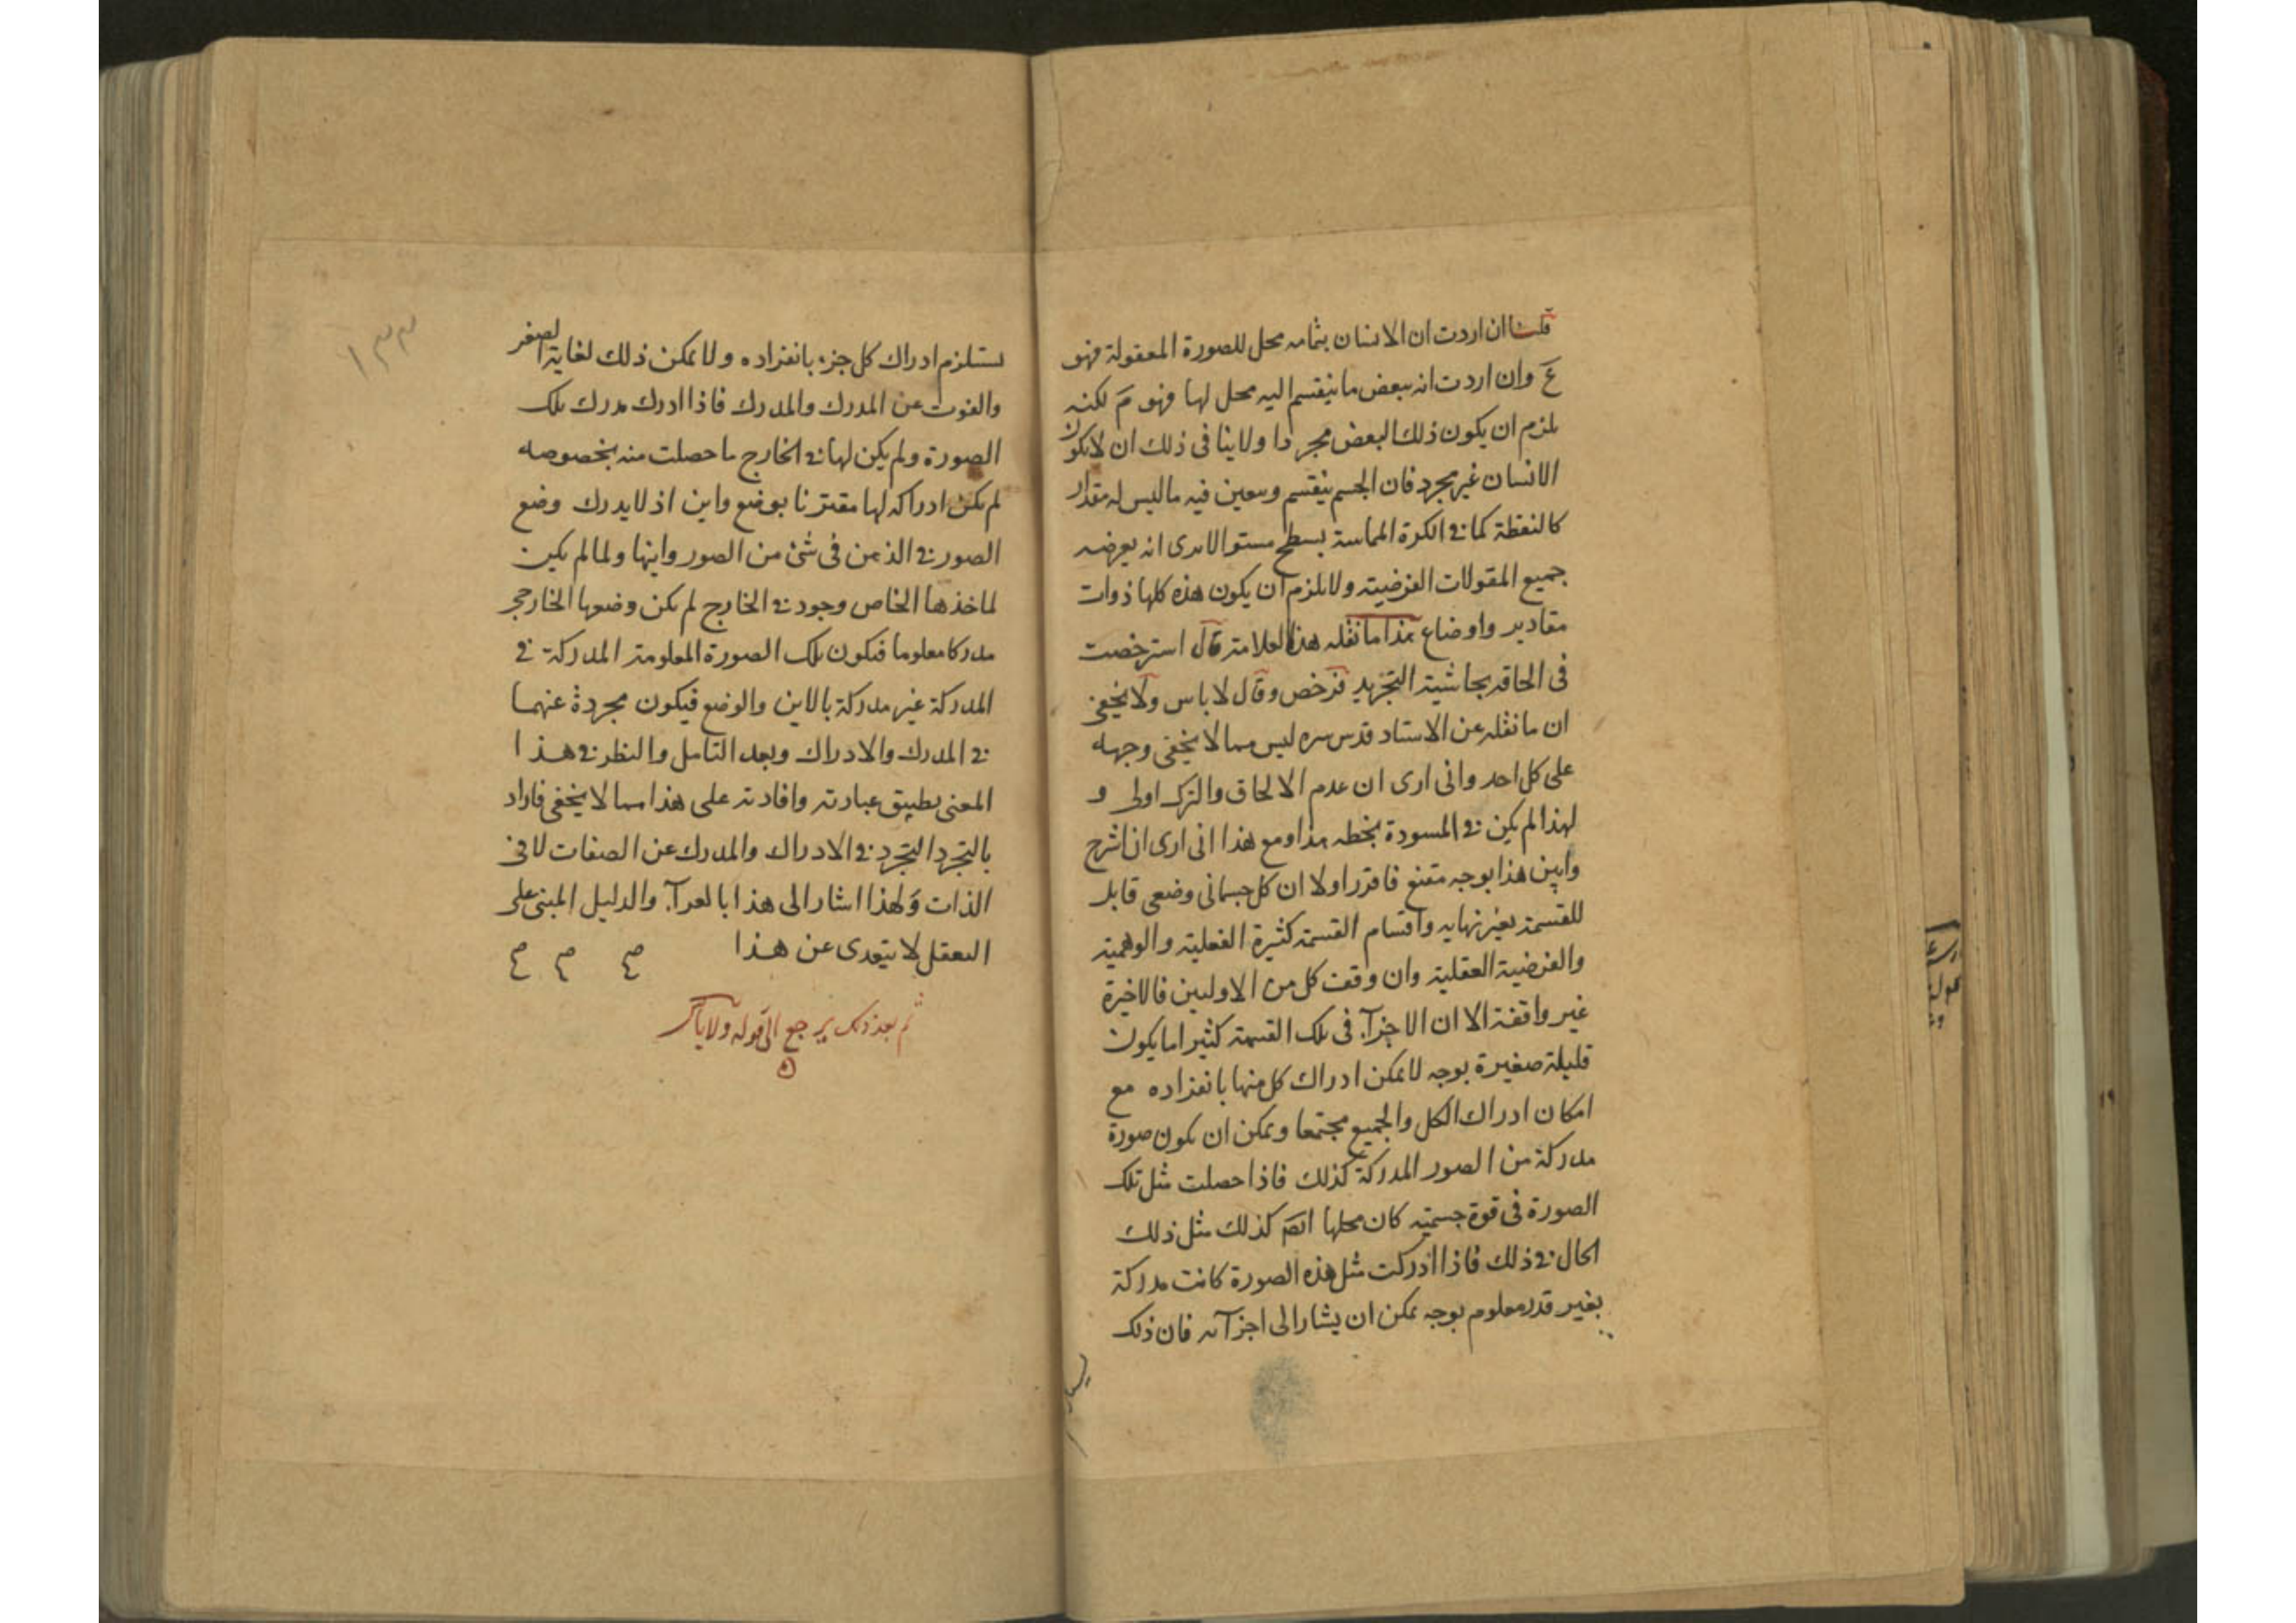 قلت ان اردت ان الانسان بتمامه محل للصورة المعقولة فهو
ع وان اردت انه ببعض ما ينقسم اليه محل لها فهو م لكنه
يلزم ان يكون ذلك البعض مجردا ولا ينافى ذلك ان لا يكون
الانسان غير مجرد فان الجسم ينقسم ويعين فيه ما ليس له مقدار
كالنقطة كما فى الكرة المماسة بسطح مستو الا يرى انه يعرضه
جميع المقولات العرضية ولا يلزم ان يكون هذه كلها ذوات
مقادير واوضاع هذا ما نقله هذا العلامة قال استرخصت
فى الحاقه بحاشية التجريد فرخص وقال لا باس ولا يخفى
ان ما نقله عن الاستاد قدس سره ليس مما لا يخفى وجهه
على كل احد وانى ارى ان عدم الالحاق والترك اولى و
لهذا لم يكن فى المسودة بخطه هذا ومع هذا انى ارى ان اشرح
وابين هذا بوجه مقنع فاقرر اولا ان كل جسمانى وضعى قابل
للقسمة بغير نهاية واقسام القسمة كثيرة الفعلية والوهمية
والفرضية العقلية وان وقفت كل من الاوليين فالاخيرة
غير واقفة الا ان الاجزآء فى تلك القسمة كثيرا ما يكون
قليلة صغيرة بوجه لا يمكن ادراك كل منها بانفراده مع
امكان ادراك الكل والجميع مجتمعا ويمكن ان يكون صورة
مدركة من الصور المدركة كذلك فاذا حصلت مثل تلك
الصورة فى قوة جسمية كان محلها ايضَ كذلك مثل ذلك
الحال فى ذلك فاذا ادركت مثل هذه الصورة كانت مدركة
بغير قدر معلوم بوجه يمكن ان يشار الى اجزآئه فان ذلك
١٣٣
يستلزم ادراك كل جزء بانفراده ولا يمكن ذلك لغاية الصغر
والفوت عن المدرك والمدرك فاذا ادرك مدرك تلك
الصورة ولم يكن لها فى الخارج ما حصلت منه بخصوصه
لم يكن ادراكه لها مقترنا بوضع واين اذ لا يدرك وضع
الصور فى الذهن فى شئ من الصور واينها ولما لم يكن
لماخذها الخاص وجود فى الخارج لم يكن وضعها الخارجى
مدركا معلوما فيكون تلك الصورة المعلومة المدركة فى
المدركة غير مدركة بالاين والوضع فيكون مجردة عنهما
فى المدرك والادراك وبعد التامل والنظر فى هذا
المعنى يطبيق عبارته وافادته على هذا مما لا يخفى فاراد
بالتجرد التجرد فى الادراك والمدرك عن الصفات لا فى
الذات ولهذا اشار الى هذا بالعرآء والدليل المبنى على
التعقل لا يتعدى عن هذا
ثم بعد ذلك يرجع الى قوله ولا